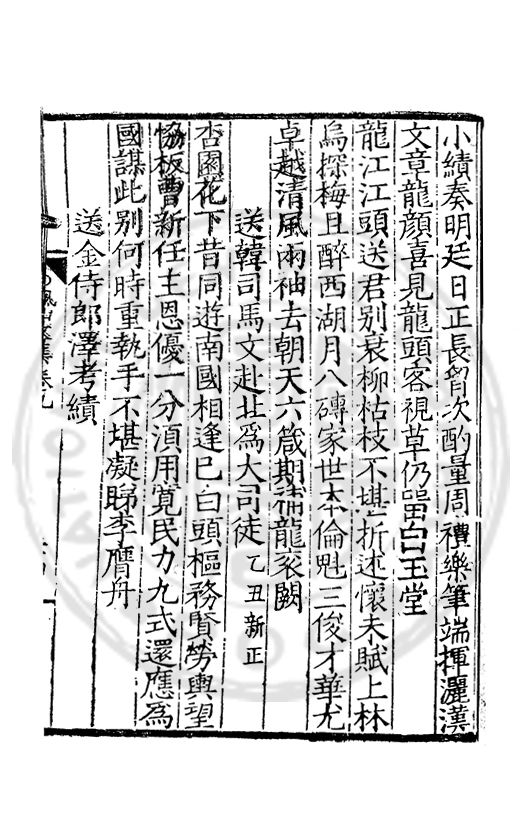 小績奏明廷日正長胷次酌量周禮樂筆端揮灑漢
文章龍顔喜見龍頭客視草仍留白玉堂
龍江江頭送君别衰柳枯枝不堪折述懷未賦上林
烏探梅且醉西湖月八磚家世本倫魁三俊才華尤
卓越清風兩袖去朝天六箴期補龍衮闕
送韓司馬文赴北爲大司徒乙丑新正
杏園花下昔同遊南國相逢巳白頭樞務賢勞輿望
恊板曹新任主恩優一分湏用寬民力九式還應爲
國謀此别何時重執手不堪凝睇李膺舟
送金侍郎澤考績
文集卷九